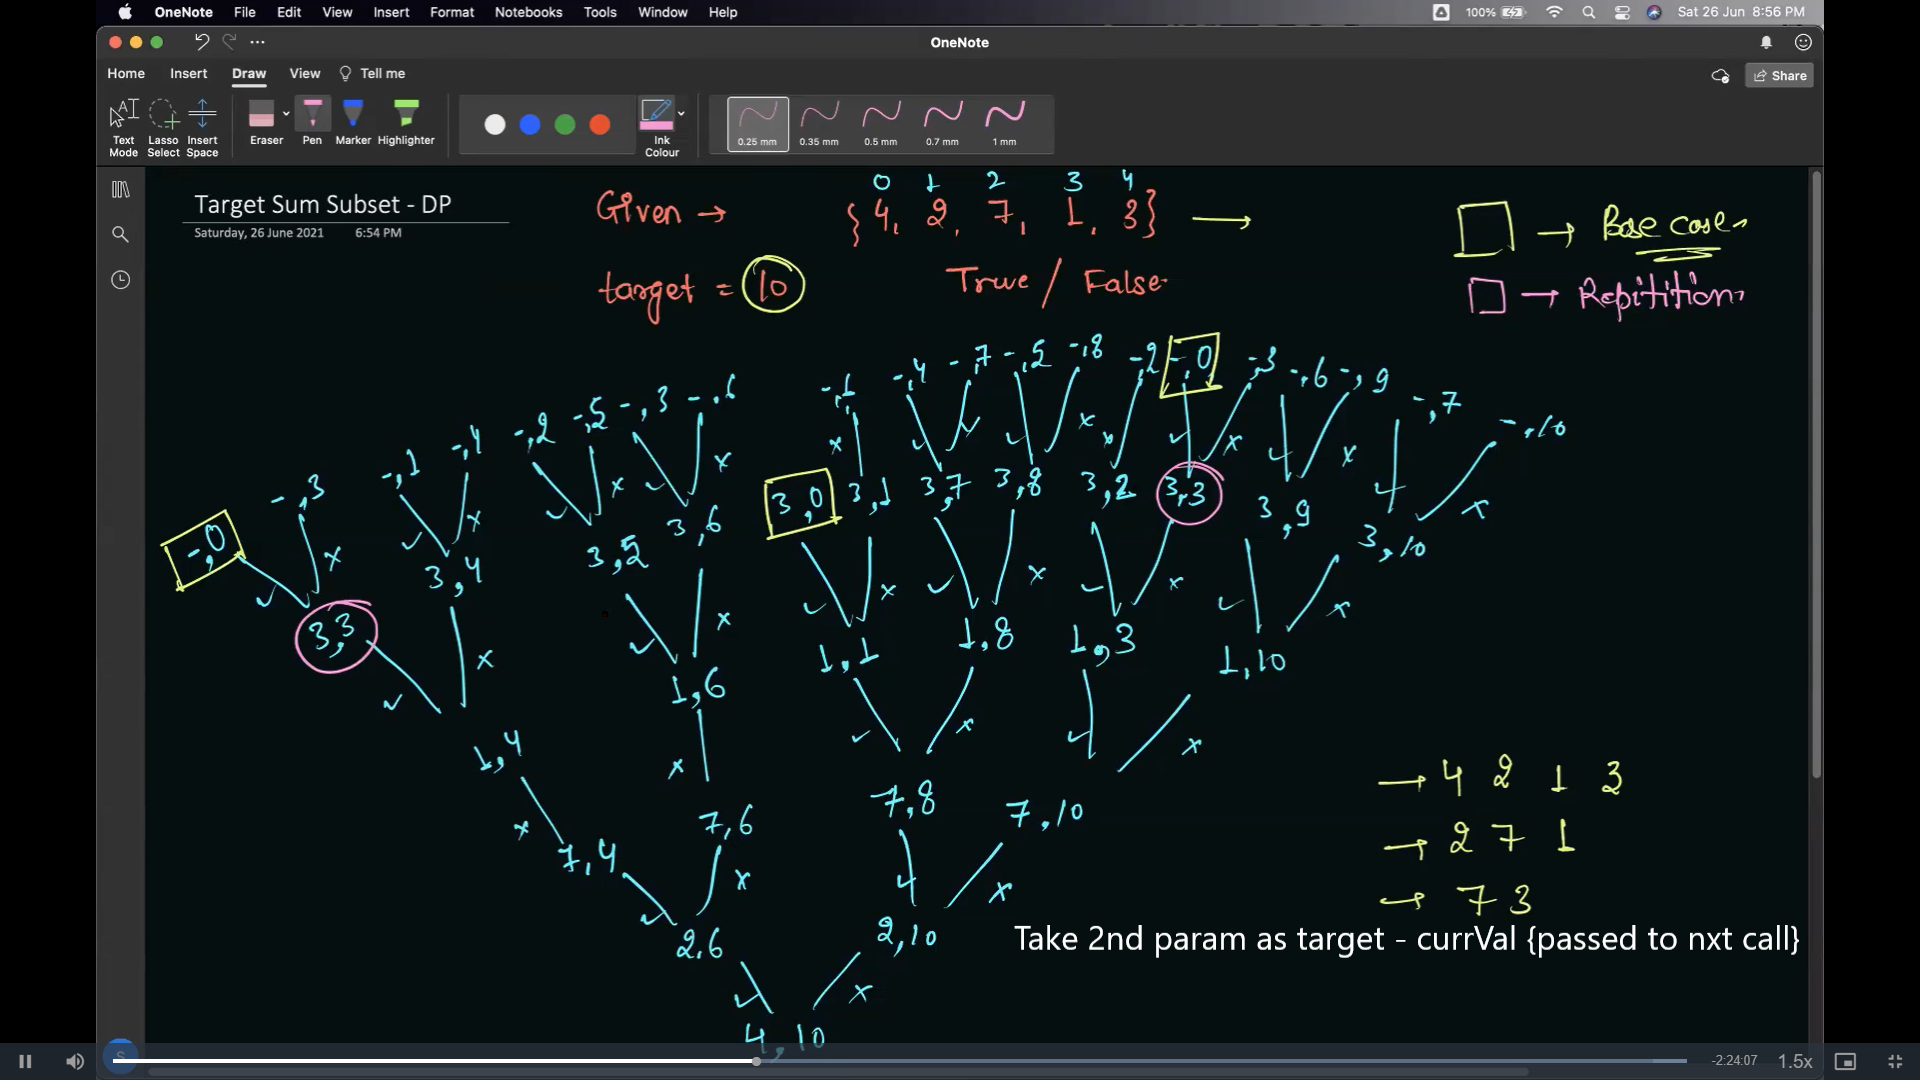 OneNote File Edit View Insert Format Notebooks Tools Window Help 100% Sat 26 Jun 8:56 PM
OneNote
Home Insert Draw View Tell me Share
Text Mode Lasso Select Insert Space Eraser Pen Marker Highlighter Ink Colour 0.25 mm 0.35 mm 0.5 mm 0.7 mm 1 mm
Target Sum Subset - DP
Saturday, 26 June 2021 6:54 PM
0 1 2 3 4
Given → {4, 2, 7, 1, 3} →
□ → Base case
target = 10 True / False
□ → Repitition
-,0 -,3 -,1 -,4 -,2 -,5 -,3 -,6 -,1 -,4 -,7 -,5 -,8 -,2 -,0 -,3 -,6 -,9 -,7 -,10
3,3 3,4 3,5 3,6 3,0 3,1 3,7 3,8 3,2 3,3 3,9 3,10
1,4 1,6 1,1 1,8 1,3 1,10
7,4 7,6 7,8 7,10
2,6 2,10
4,10
→ 4 2 1 3
→ 2 7 1
→ 7 3
Take 2nd param as target - currVal {passed to nxt call}
-2:24:07 1.5x